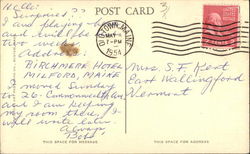 Hello:
POST CARD
Surprised??
I am playing
and will be
two weeks.
Address:
BIRCHMERE HOTEL
MILFORD, MAINE
I moved Sunday
to 26. Commonwealth
and I am keeping
my room there. I
will write later.
Always
Bob
OLD TOWN, MAINE
MAY
7-PM
1954
Mrs. S. F. Kent
East Wallingford
Vermont
THIS SPACE FOR MESSAGE
THIS SPACE FOR ADDRESS